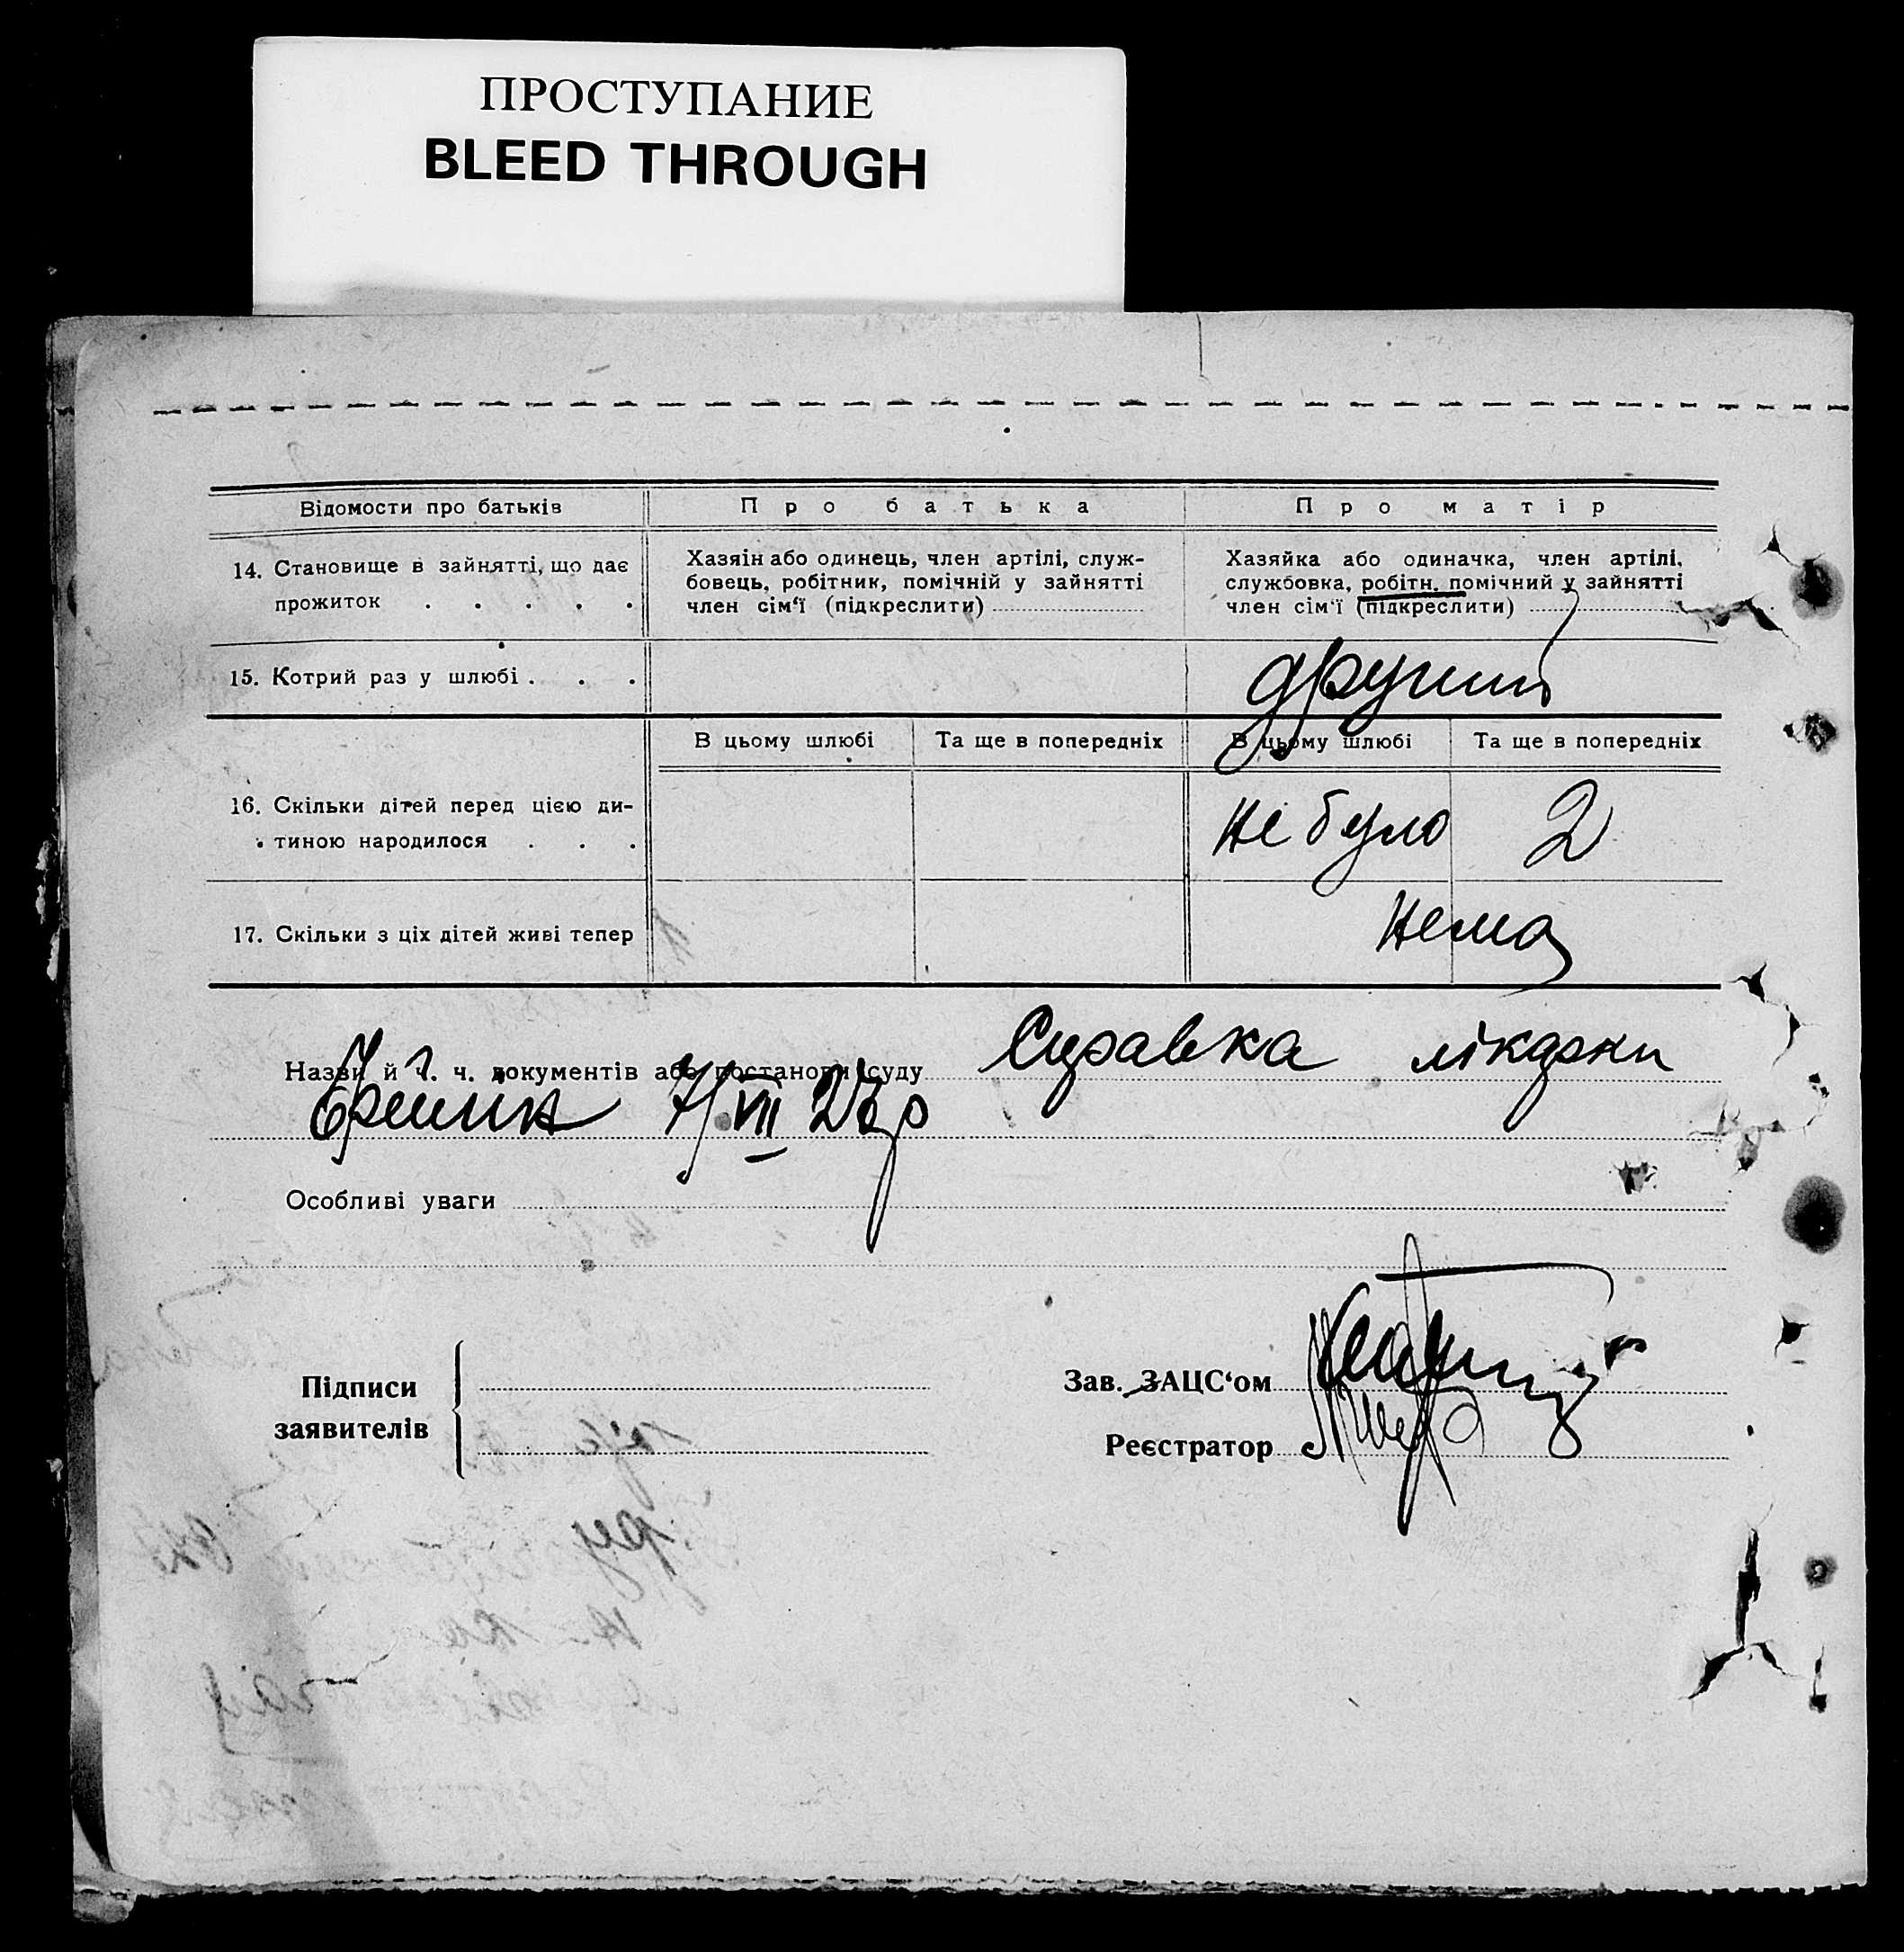 ПРОСТУПАНИЕ
BLEED THROUGH
Відомости про батьків
Про батька
Про матір
14. Становище в зайнятті, що дає
прожиток . . . . .
Хазяін або одинець, член артілі, служ-
бовець, робітник, помічній у зайнятті
член сім'ї (підкреслити)
Хазяйка або одиначка, член артілі,
службовка, робітн. помічний у зайнятті
член сім'ї (підкреслити)
15. Котрий раз у шлюбі . . .
другий
В цьому шлюбі
Та ще в попередніх
В цьому шлюбі
Та ще в попередніх
16. Скільки дітей перед цією ди-
тиною народилося . . .
не було
2
17. Скільки з ціх дітей живі тепер
нема
Назви й ч. ч. документів або постанови суду Справка лікарки
VII 27 р
Особливі уваги
Підписи
заявителів
Зав. ЗАЦС'ом
Реєстратор